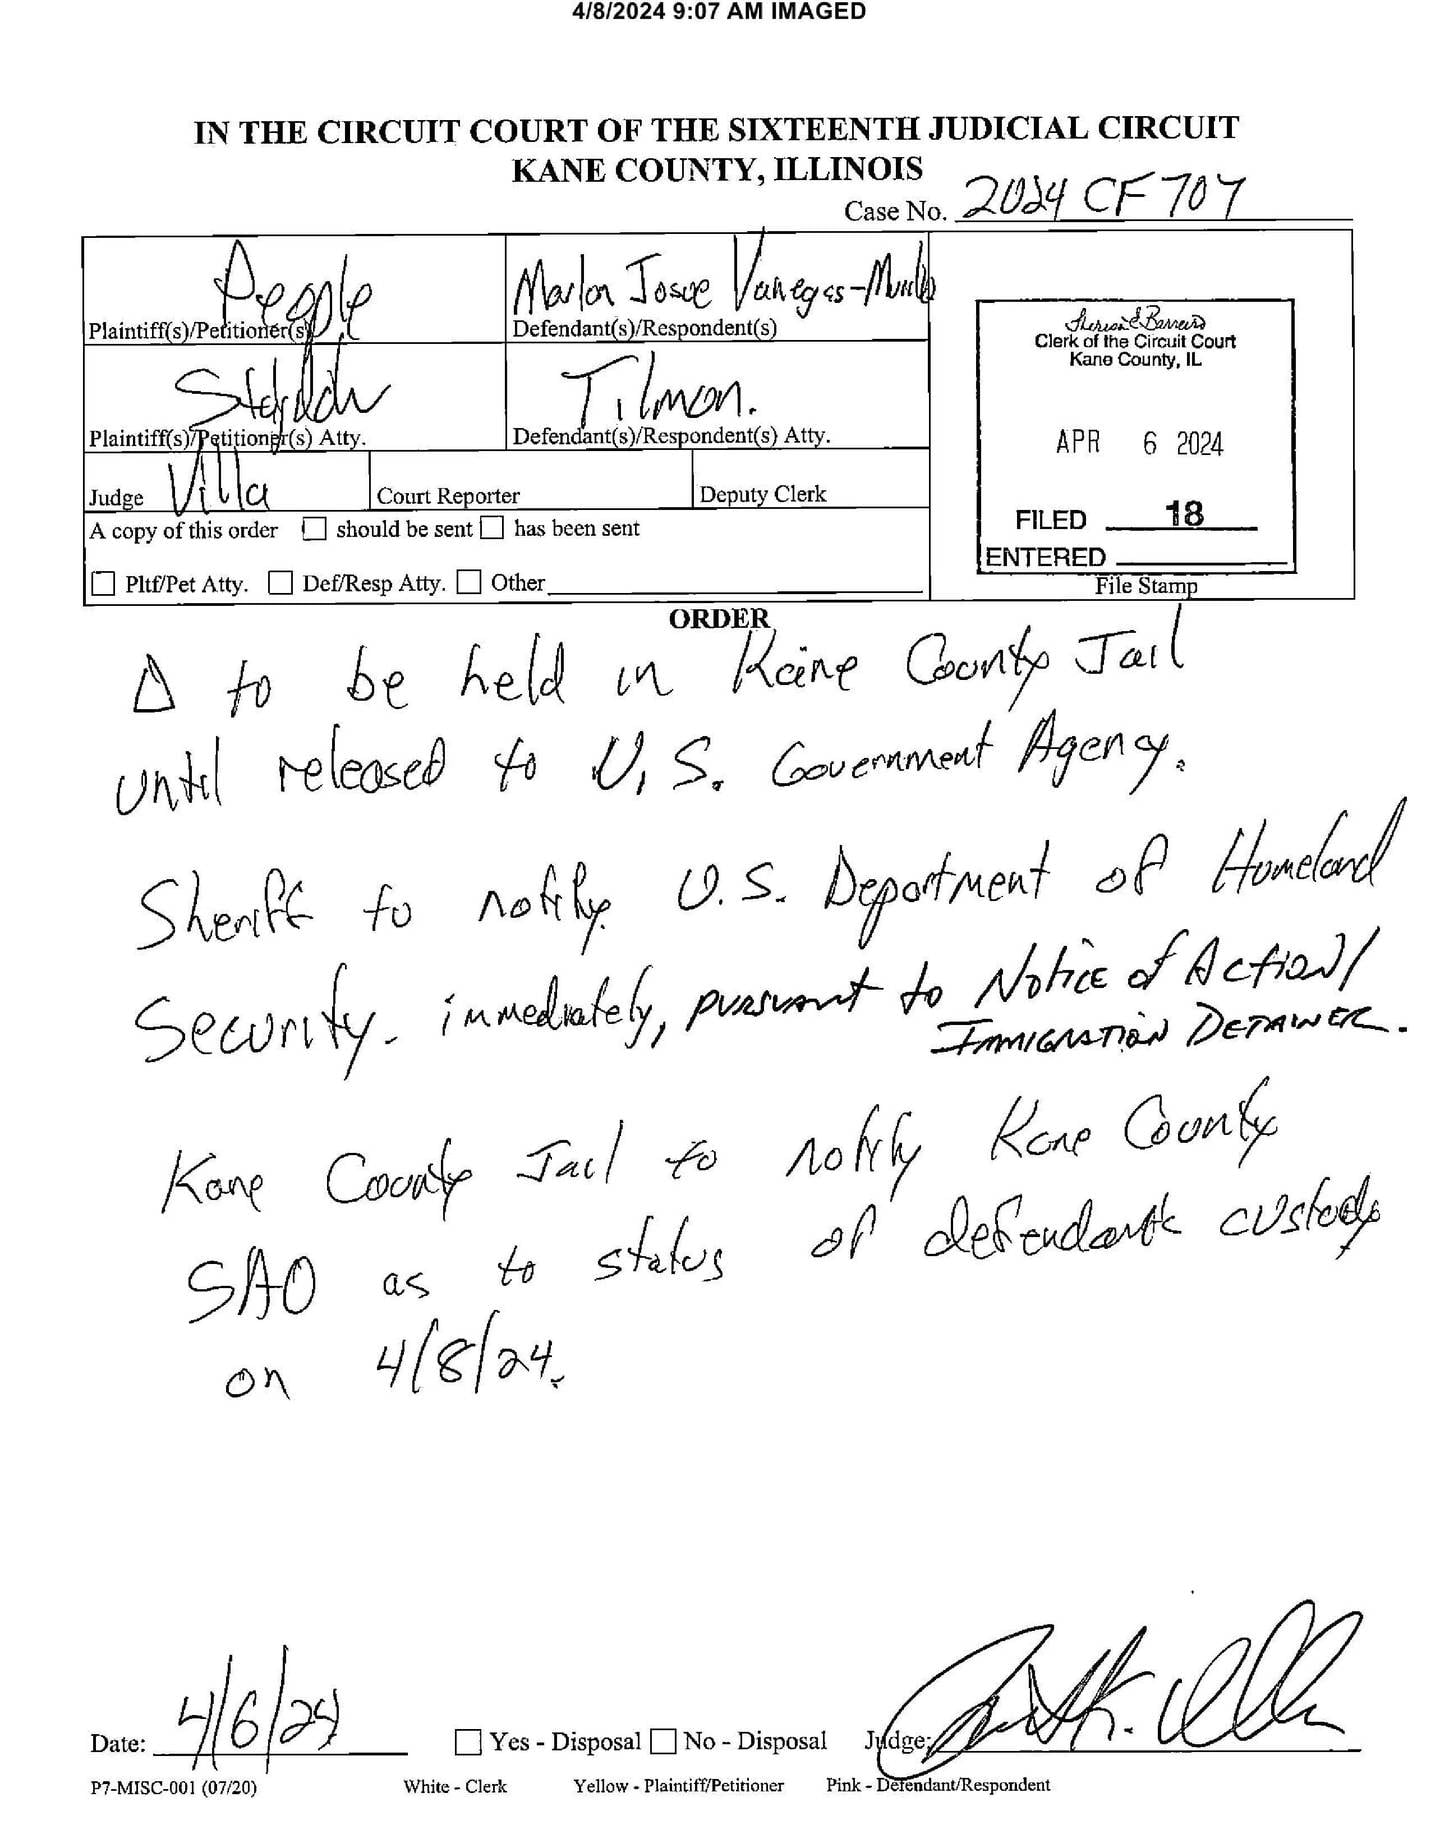 4/8/2024 9:07 AM IMAGED
IN THE CIRCUIT COURT OF THE SIXTEENTH JUDICIAL CIRCUIT
KANE COUNTY, ILLINOIS
Case No. 2024 CF 707
People
Plaintiff(s)/Petitioner(s)
Marlon Josue Vanegas-
Defendant(s)/Respondent(s)
Plaintiff(s)/Petitioner(s) Atty.
Tilmon.
Defendant(s)/Respondent(s) Atty.
Judge Villa
Court Reporter
Deputy Clerk
A copy of this order ☐ should be sent ☐ has been sent
☐ Pltf/Pet Atty. ☐ Def/Resp Atty. ☐ Other
Theresa E Barreiro
Clerk of the Circuit Court
Kane County, IL
APR 6 2024
FILED 18
ENTERED
File Stamp
ORDER
Δ to be held in Kane County Jail
until released to U.S. Government Agency.
Sheriff to notify U.S. Department of Homeland
Security. immediately, pursuant to Notice of Action/
IMMIGRATION DETAINER.
Kane County Jail to notify Kane County
SAO as to status of defendants custody
on 4/8/24.
Date: 4/6/24
☐ Yes - Disposal ☐ No - Disposal
Judge:
P7-MISC-001 (07/20)
White - Clerk
Yellow - Plaintiff/Petitioner
Pink - Defendant/Respondent